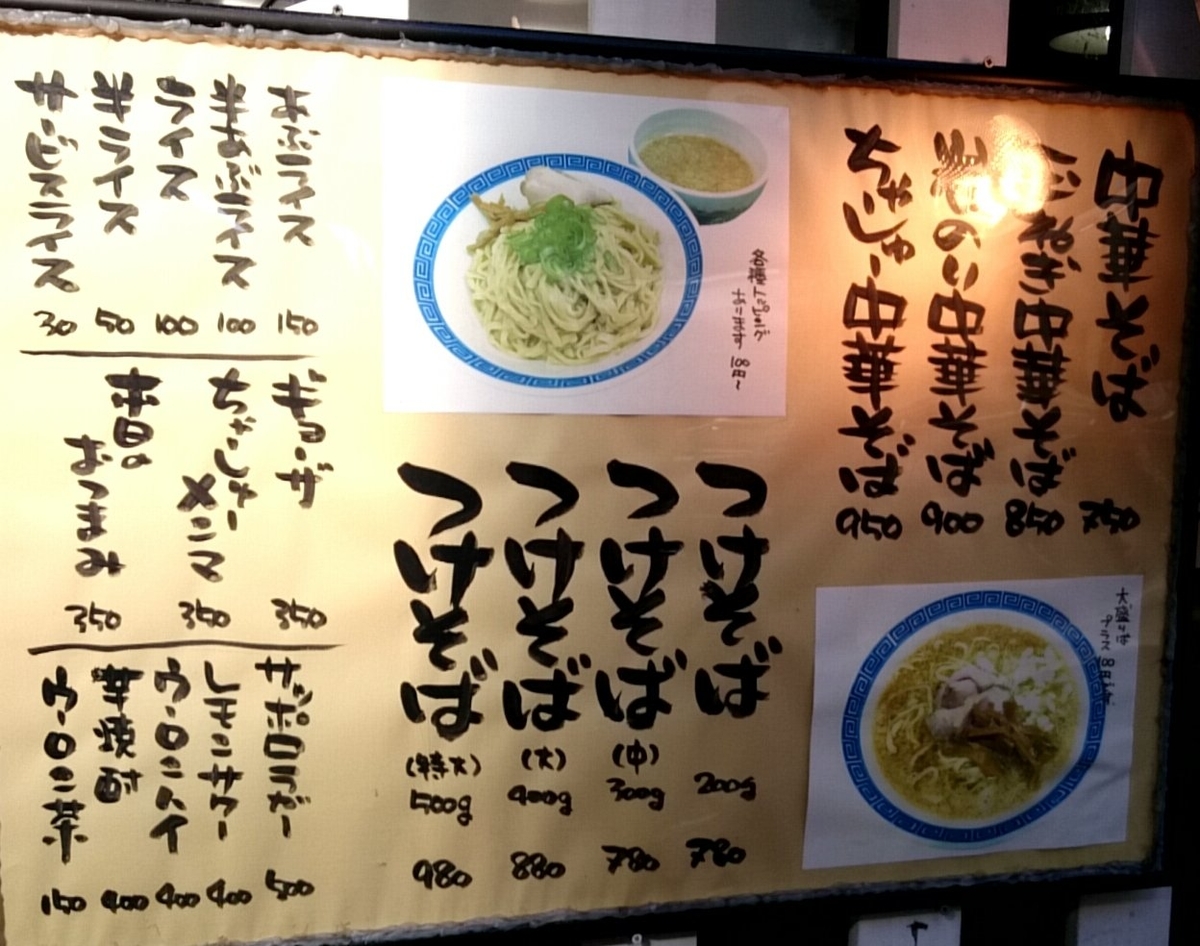 中華そば 750
ねぎ中華そば 850
のり中華そば 900
ちゃーしゅー中華そば 950
大盛りは
プラス
各種トッピング
あります 100円~
つけそば 200g 780
つけそば (中) 300g 780
つけそば (大) 400g 880
つけそば (特大) 500g 980
あぶライス 150
半あぶライス 100
ライス 100
半ライス 50
サービスライス 30
ギョーザ 350
ちゃーしゅー
メンマ 350
本日の
おつまみ 350
サッポロラガー 500
レモンサワー 400
ウーロンハイ 400
芋焼酎 400
ウーロン茶 150